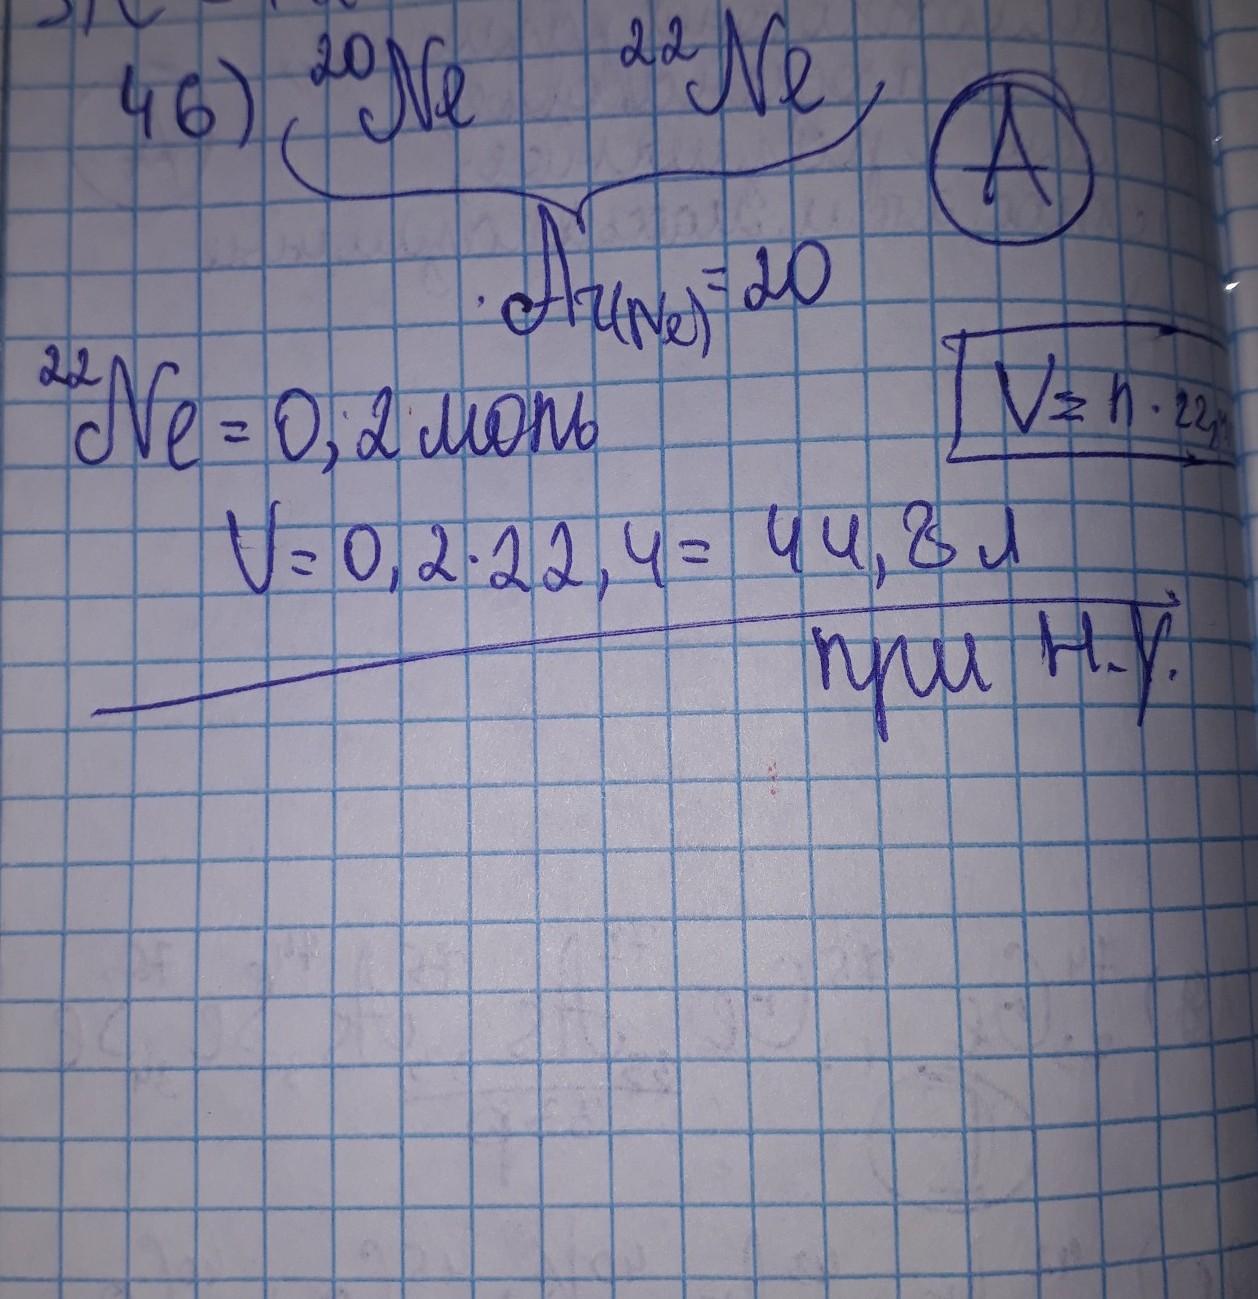 46) ²⁰Ne ²²Ne A
Ar(Ne) = 20
²²Ne = 0,2 моль
V = n · 22,4
V = 0,2 · 22,4 = 44,8 л
при н.у.